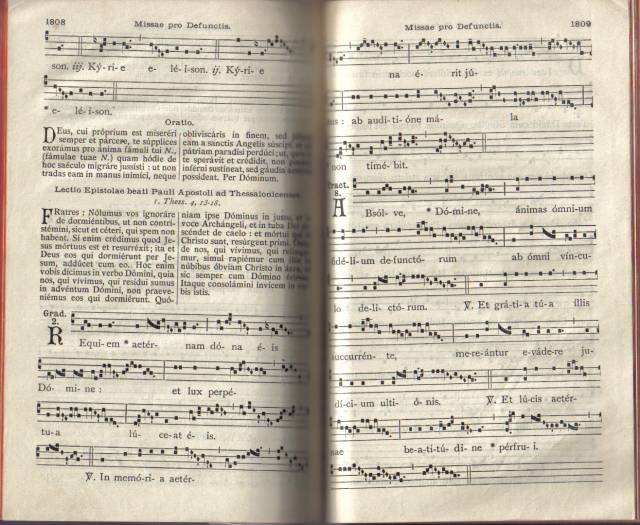 1808 Missae pro Defunctis.
son. iij. Ký-ri- e e- lé-i-son. ij. Ký-ri- e
* e- lé-i-son.
Oratio.
DEus, cui próprium est miseréri
semper et párcere, te súpplices
exorámus pro ánima fámuli tui N.,
(fámulae tuae N.) quam hódie de
hoc saéculo migráre jussísti : ut non
tradas eam in manus inimíci, neque
obliviscáris in finem, sed
eam a sanctis Angelis súscipi, et
pátriam paradísi perdúci; ut, quia in
te sperávit et crédidit, non poenas
inférni sustíneat, sed gáudia aetérna
possídeat. Per Dóminum.
Lectio Epistolae beati Pauli Apostoli ad Thessalonicenses.
1. Thess. 4, 13-18.
FRatres : Nólumus vos ignoráre
de dormiéntibus, ut non contri-
stémini, sicut et céteri, qui spem non
habent. Si enim crédimus quod Je-
sus mórtuus est et resurréxit; ita et
Deus eos qui dormiérunt per Je-
sum, addúcet cum eo. Hoc enim
vobis dícimus in verbo Dómini, quia
nos, qui vívimus, qui resídui sumus
in advéntum Dómini, non praeve-
niémus eos qui dormiérunt. Quó-
niam ipse Dóminus in jussu, et in
voce Archángeli, et in tuba Dei de-
scéndet de caelo : et mórtui qui in
Christo sunt, resúrgent primi. Deínde
nos, qui vívimus, qui relínqui-
mur, simul rapiémur cum illis in
núbibus óbviam Christo in áera, et
sic semper cum Dómino érimus.
Itaque consolámini ínvicem in ver-
bis istis.
Grad.
2.
REquiem * aetér- nam dó- na é- is
Dó- mi- ne : et lux perpé-
tu-a lú- ce-at é- is.
℣. In memó-ri- a aetér-
Missae pro Defunctis. 1809
na é- rit jú-
: ab audi-ti- óne má- la
non timé- bit.
Tract.
8.
ABsól- ve, Dó-mi-ne, ánimas ómni-um
fidé-li-um de-functó- rum ab ómni vín-cu-
lo de-li- ctó-rum. ℣. Et grá-ti-a tú-a íllis
succurrén- te, me-re-ántur e-váde-re ju-
dí-ci-um ulti- ó- nis. ℣. Et lú-cis aetér-
nae be-a-ti-tú- di-ne * pérfru- i.